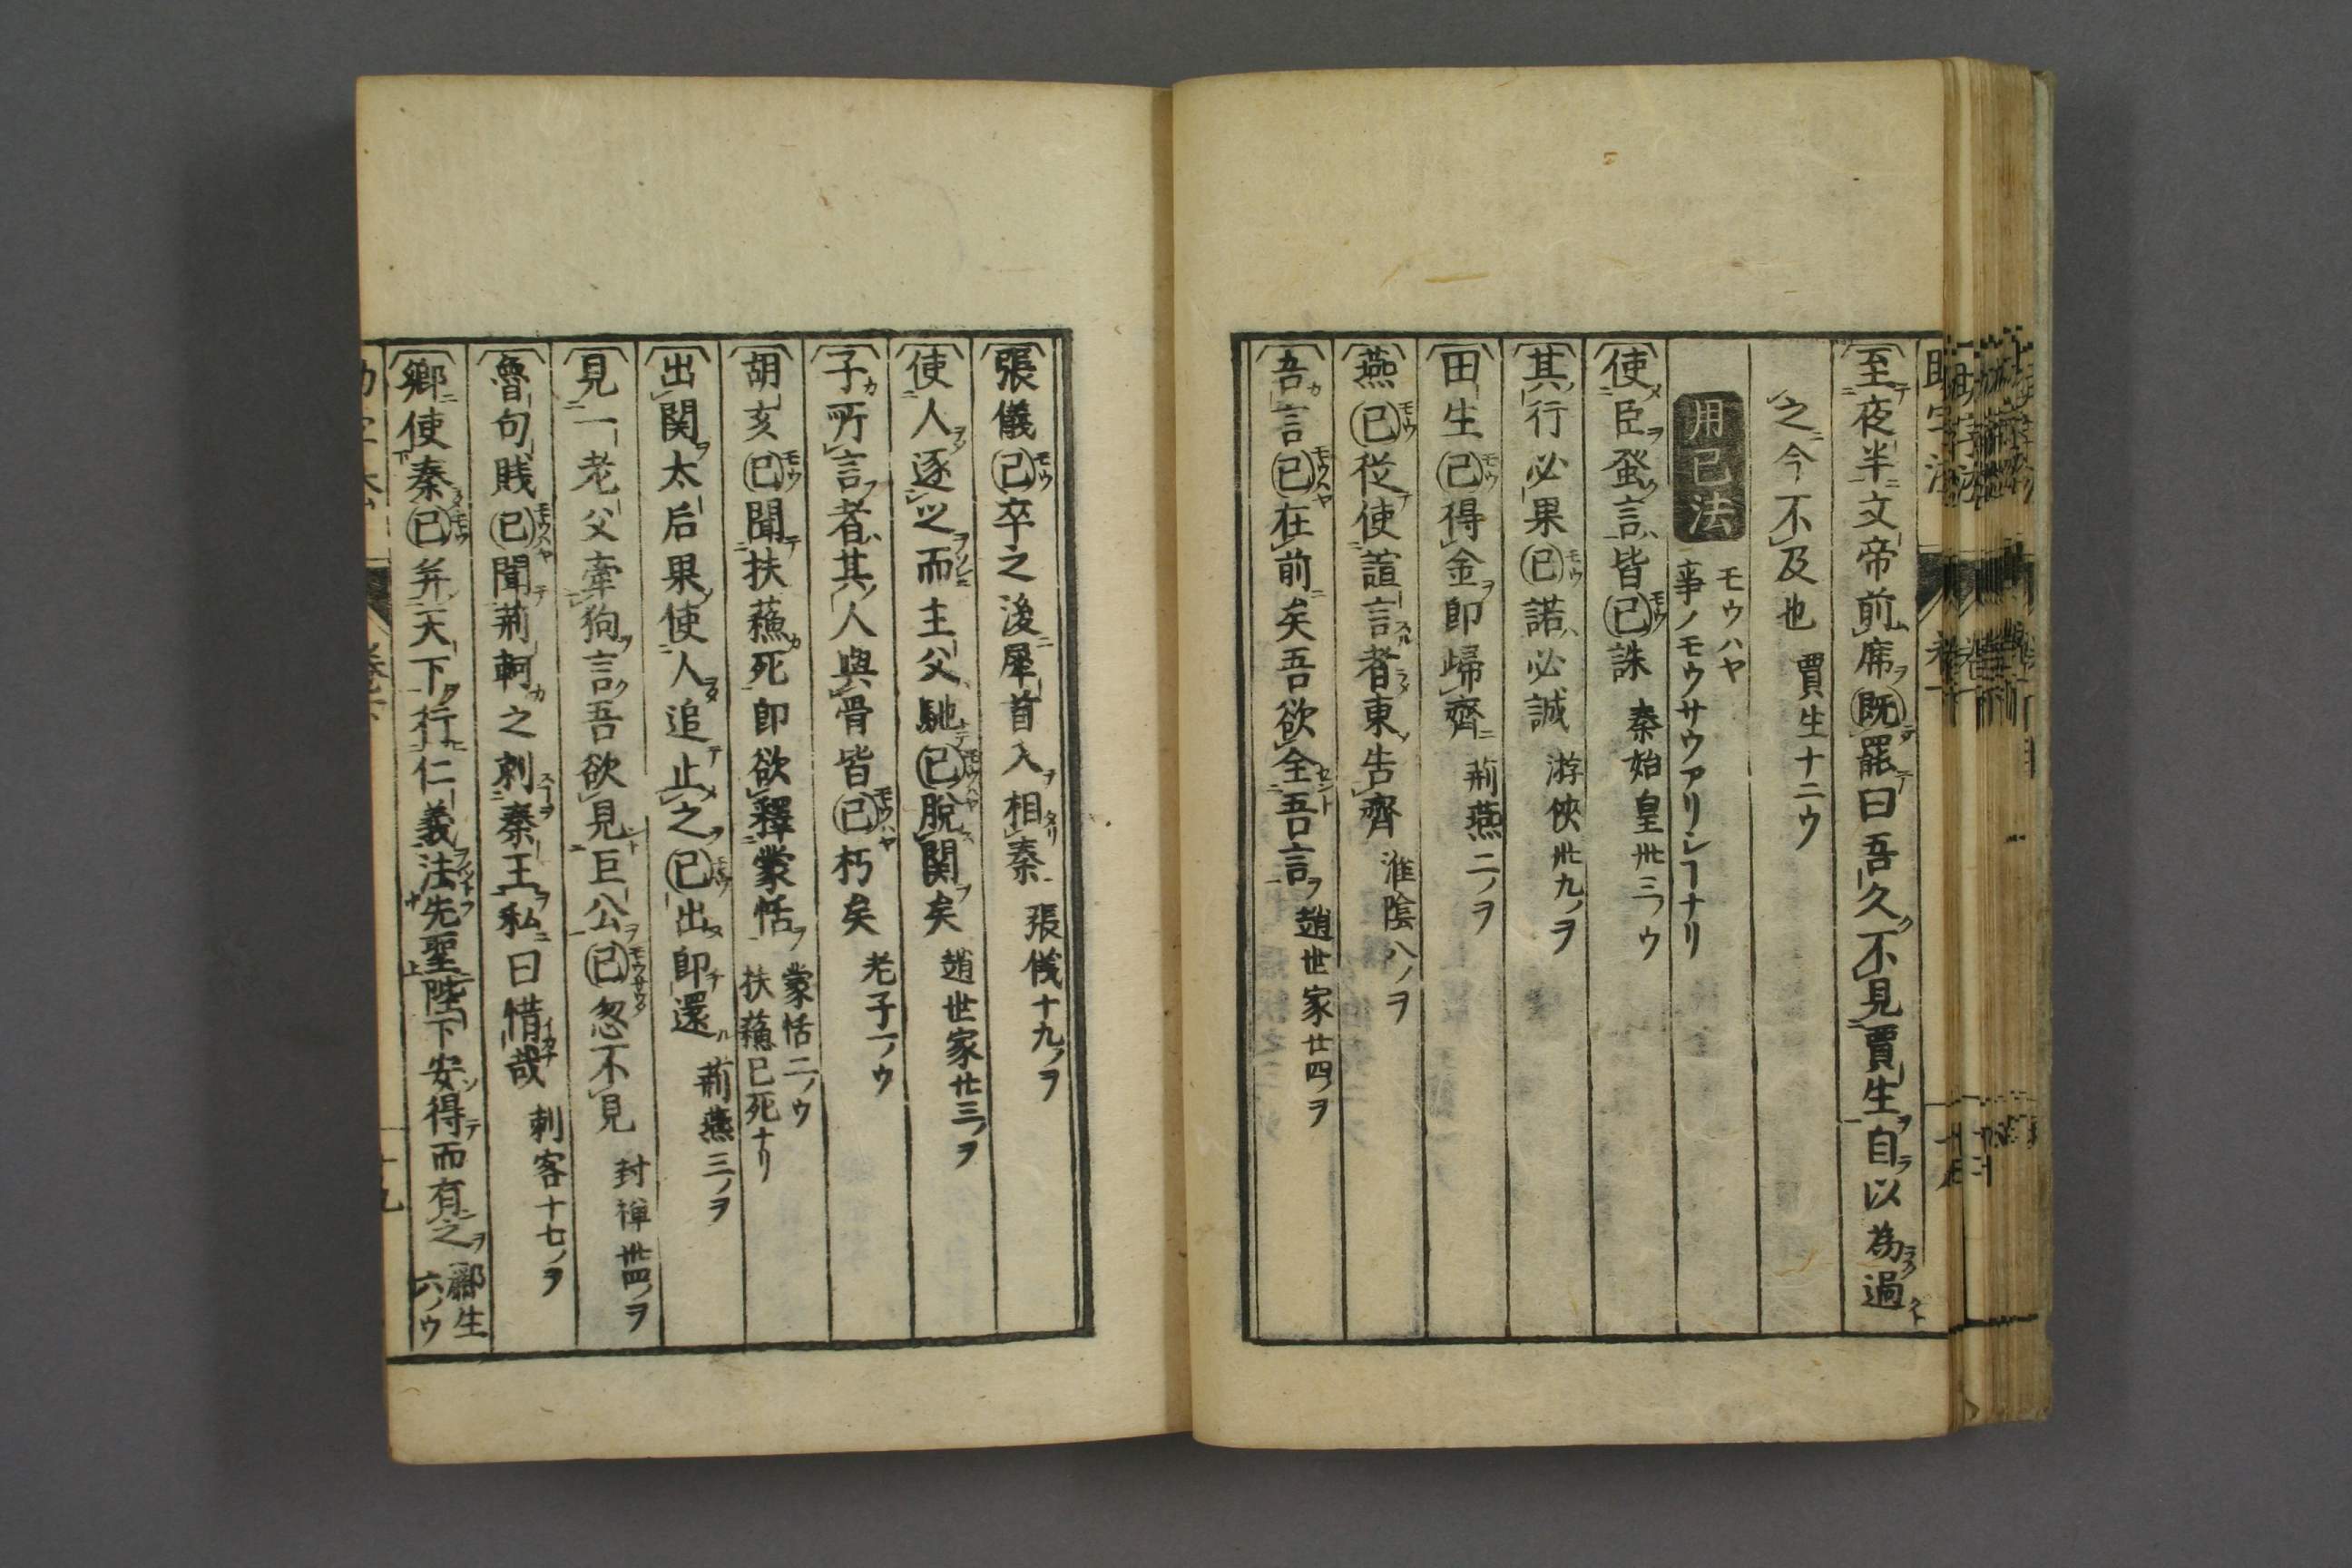 至夜半文帝前席既罷曰吾久不見賈生自以為過
之今不及也 賈生十二ウ
用已法 モウハヤ 事ノモウサウアリシーナリ
使臣發言皆已誅 秦始皇卅三ノウ
其行必果已諾必誠 游俠卅九ノヲ
田生已得金即歸齊 荊燕二ノヲ
燕已從使諠言者東告齊 淮陰八ノヲ
吾言已在前矣吾欲全吾言 趙世家廿四ノヲ
張儀已卒之後犀首入相秦 張儀十九ノヲ
使人逐之而主父馳已脫関矣 趙世家廿三ノヲ
子所言者其人與骨皆已朽矣 老子一ノウ
胡亥已聞扶蘓死即欲釋蒙恬 蒙恬二ノウ 扶蘓已死ナリ
出関太后果使人追止之已出即還 荊燕三ノヲ
見一老父牽狗言吾欲見巨公已忽不見 封禅卅四ノヲ
魯句賎已聞荊軻之刺秦王私曰惜哉 刺客十七ノヲ
鄉使秦已并天下行仁義法先聖陛下安得而有之 酈生六ノウ